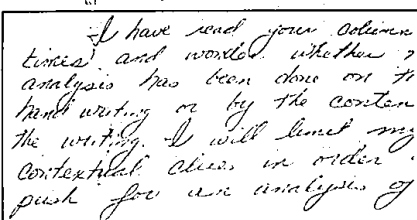 I have read your column
times and wonder whether
analysis has been done on th
handwriting or by the conten
the writing. I will limit my
contextual clues in order
push for an analysis of